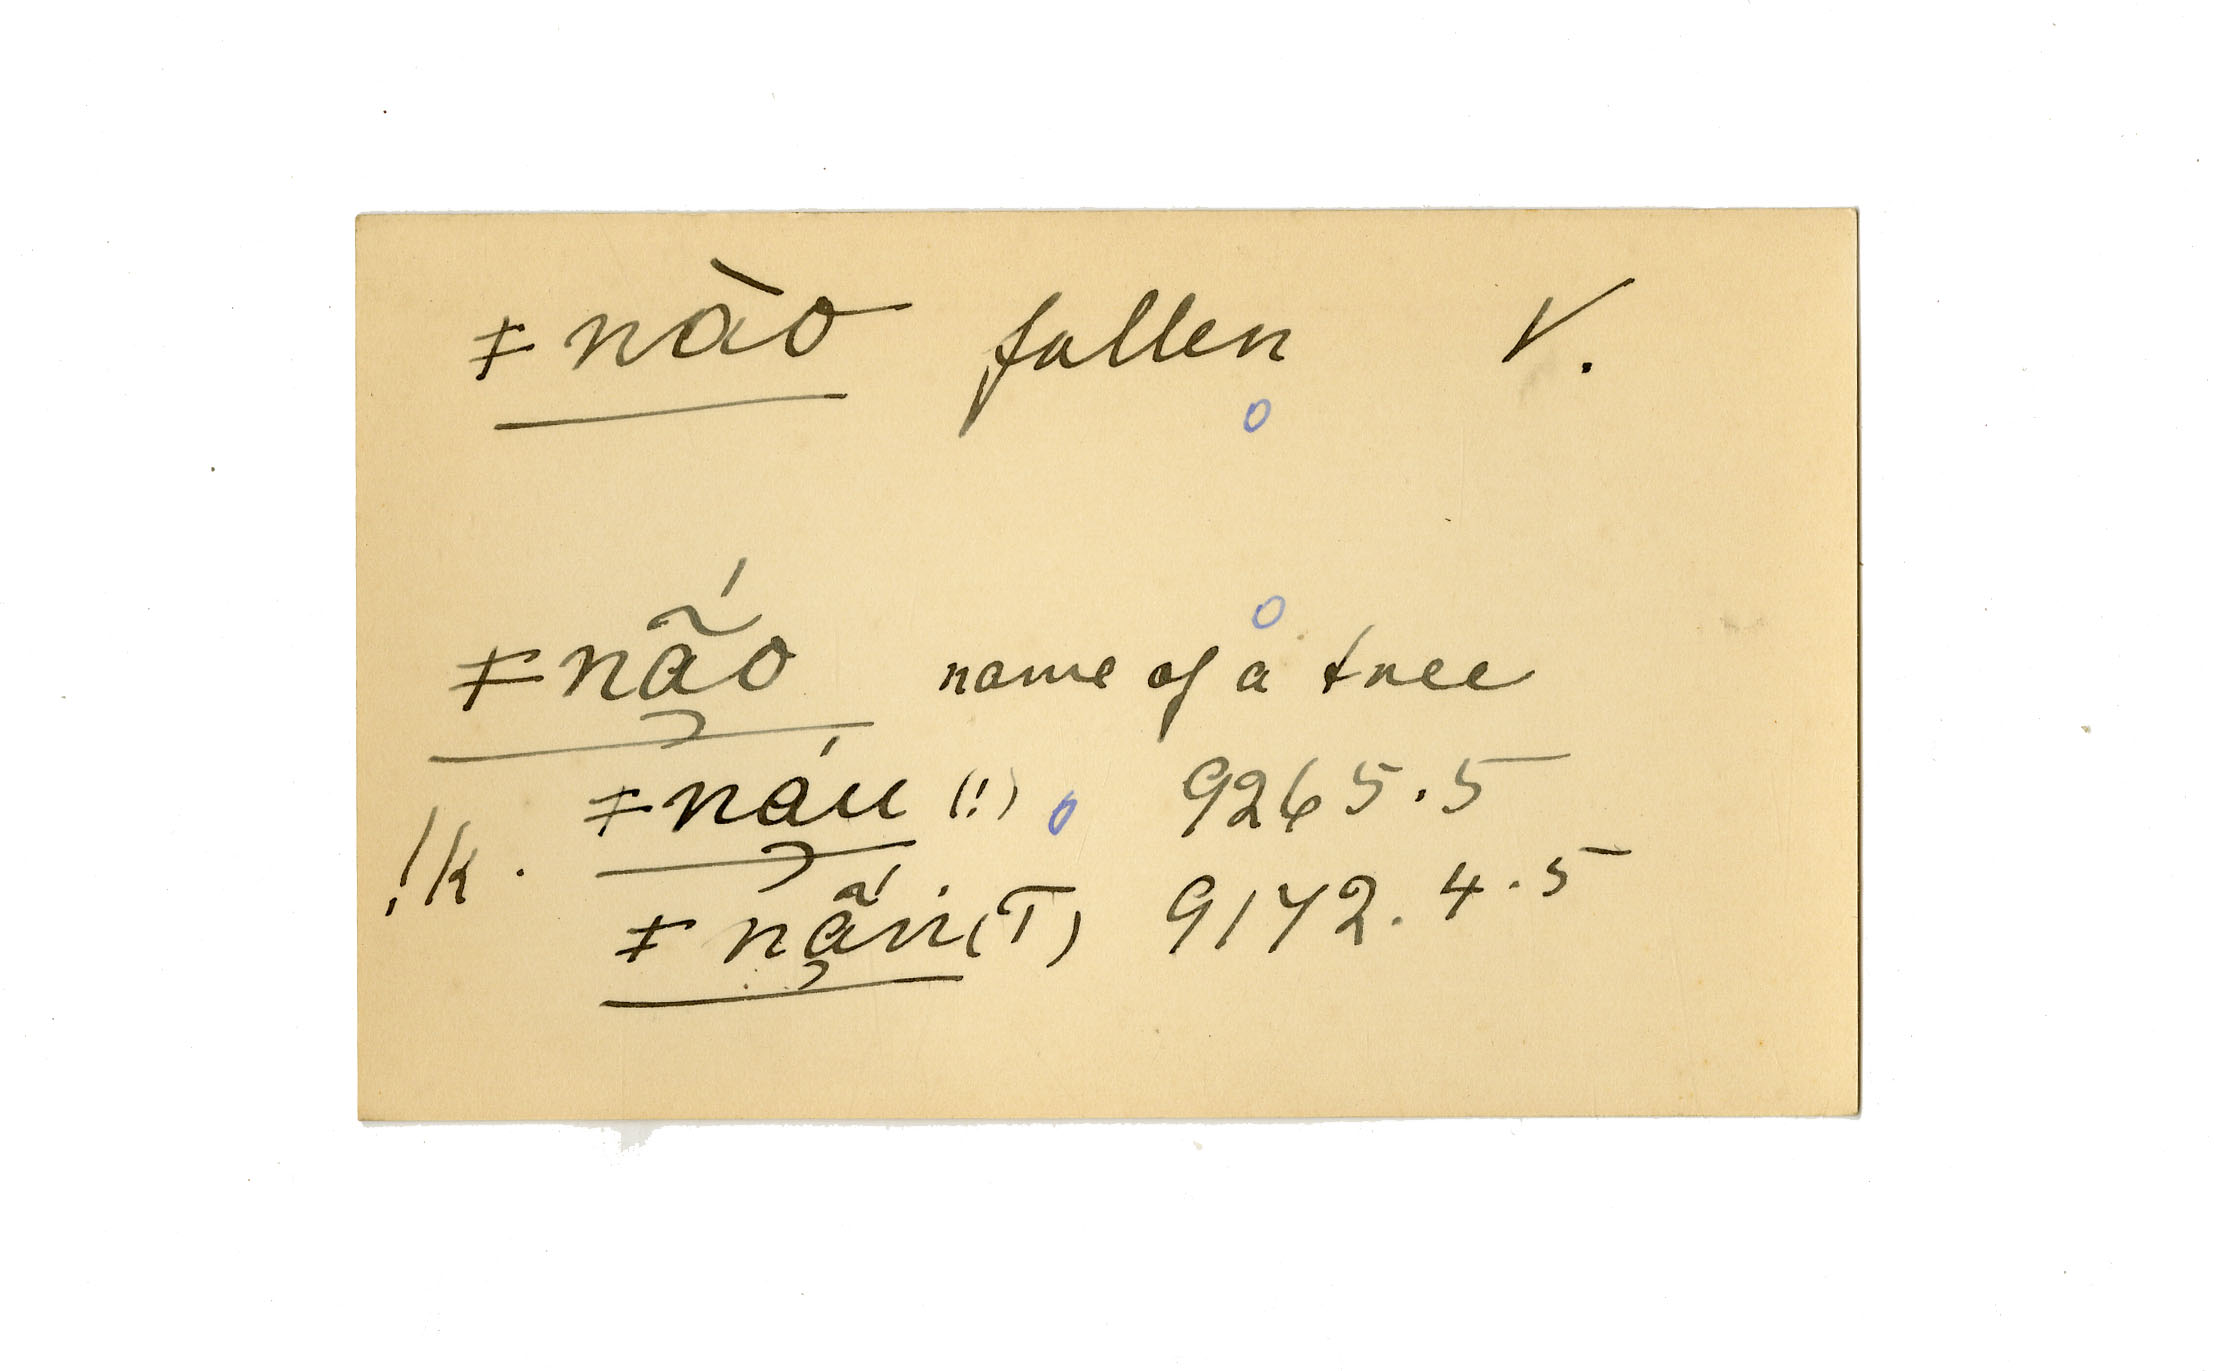 ǂnào fallen V.
ǂnã́o name of a tree
ǂnáu (!) 9265.5
!k. ǂnã́ṅ (T) 9142.4.5